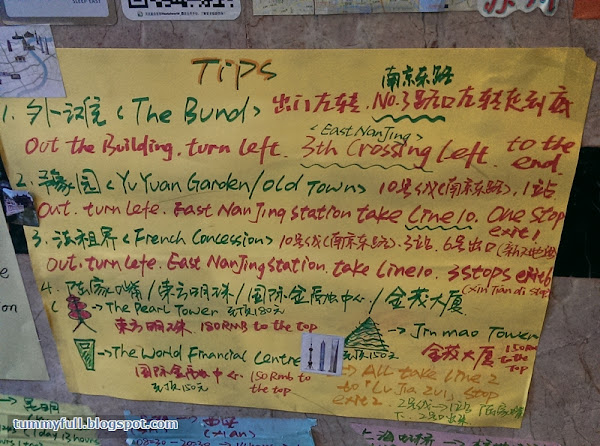 SLEEP EAST
苏州
Tips
南京东路
1. 外滩 < The Bund > 出门左转. No.3号路口左转走到底
< East NanJing >
Out the Building. turn left. 3th Crossing left. to the end.
2. 豫园 < Yu Yuan Garden / Old Town > 10号线(南京东路), 1站
Out. turn Left. East NanJing station take Line 10. One stop exit 1
3. 法租界 < French Concession > 10号线(南京东路). 3站. 6号出口 (新天地站)
Out. turn Left. East NanJing station. take Line 10. 3 stops exit 6
(xin Tian di stop)
4. 陆家嘴 / 东方明珠 / 国际金融中心 / 金茂大厦
→ The Pearl Tower 去顶180元
东方明珠 180RMB to the top
→ Jin mao Tower
去顶150元 金茂大厦 150RMB to the top
→ The World Financial Centre
国际金融中心. 150Rmb to the top
去顶150元
→ All take Line 2 to "Lu Jia Zui" stop exit 2.
2号线→1站
下. 2号口出来
tummyfull.blogspot.com
1day 13hours
(Xian)
上海